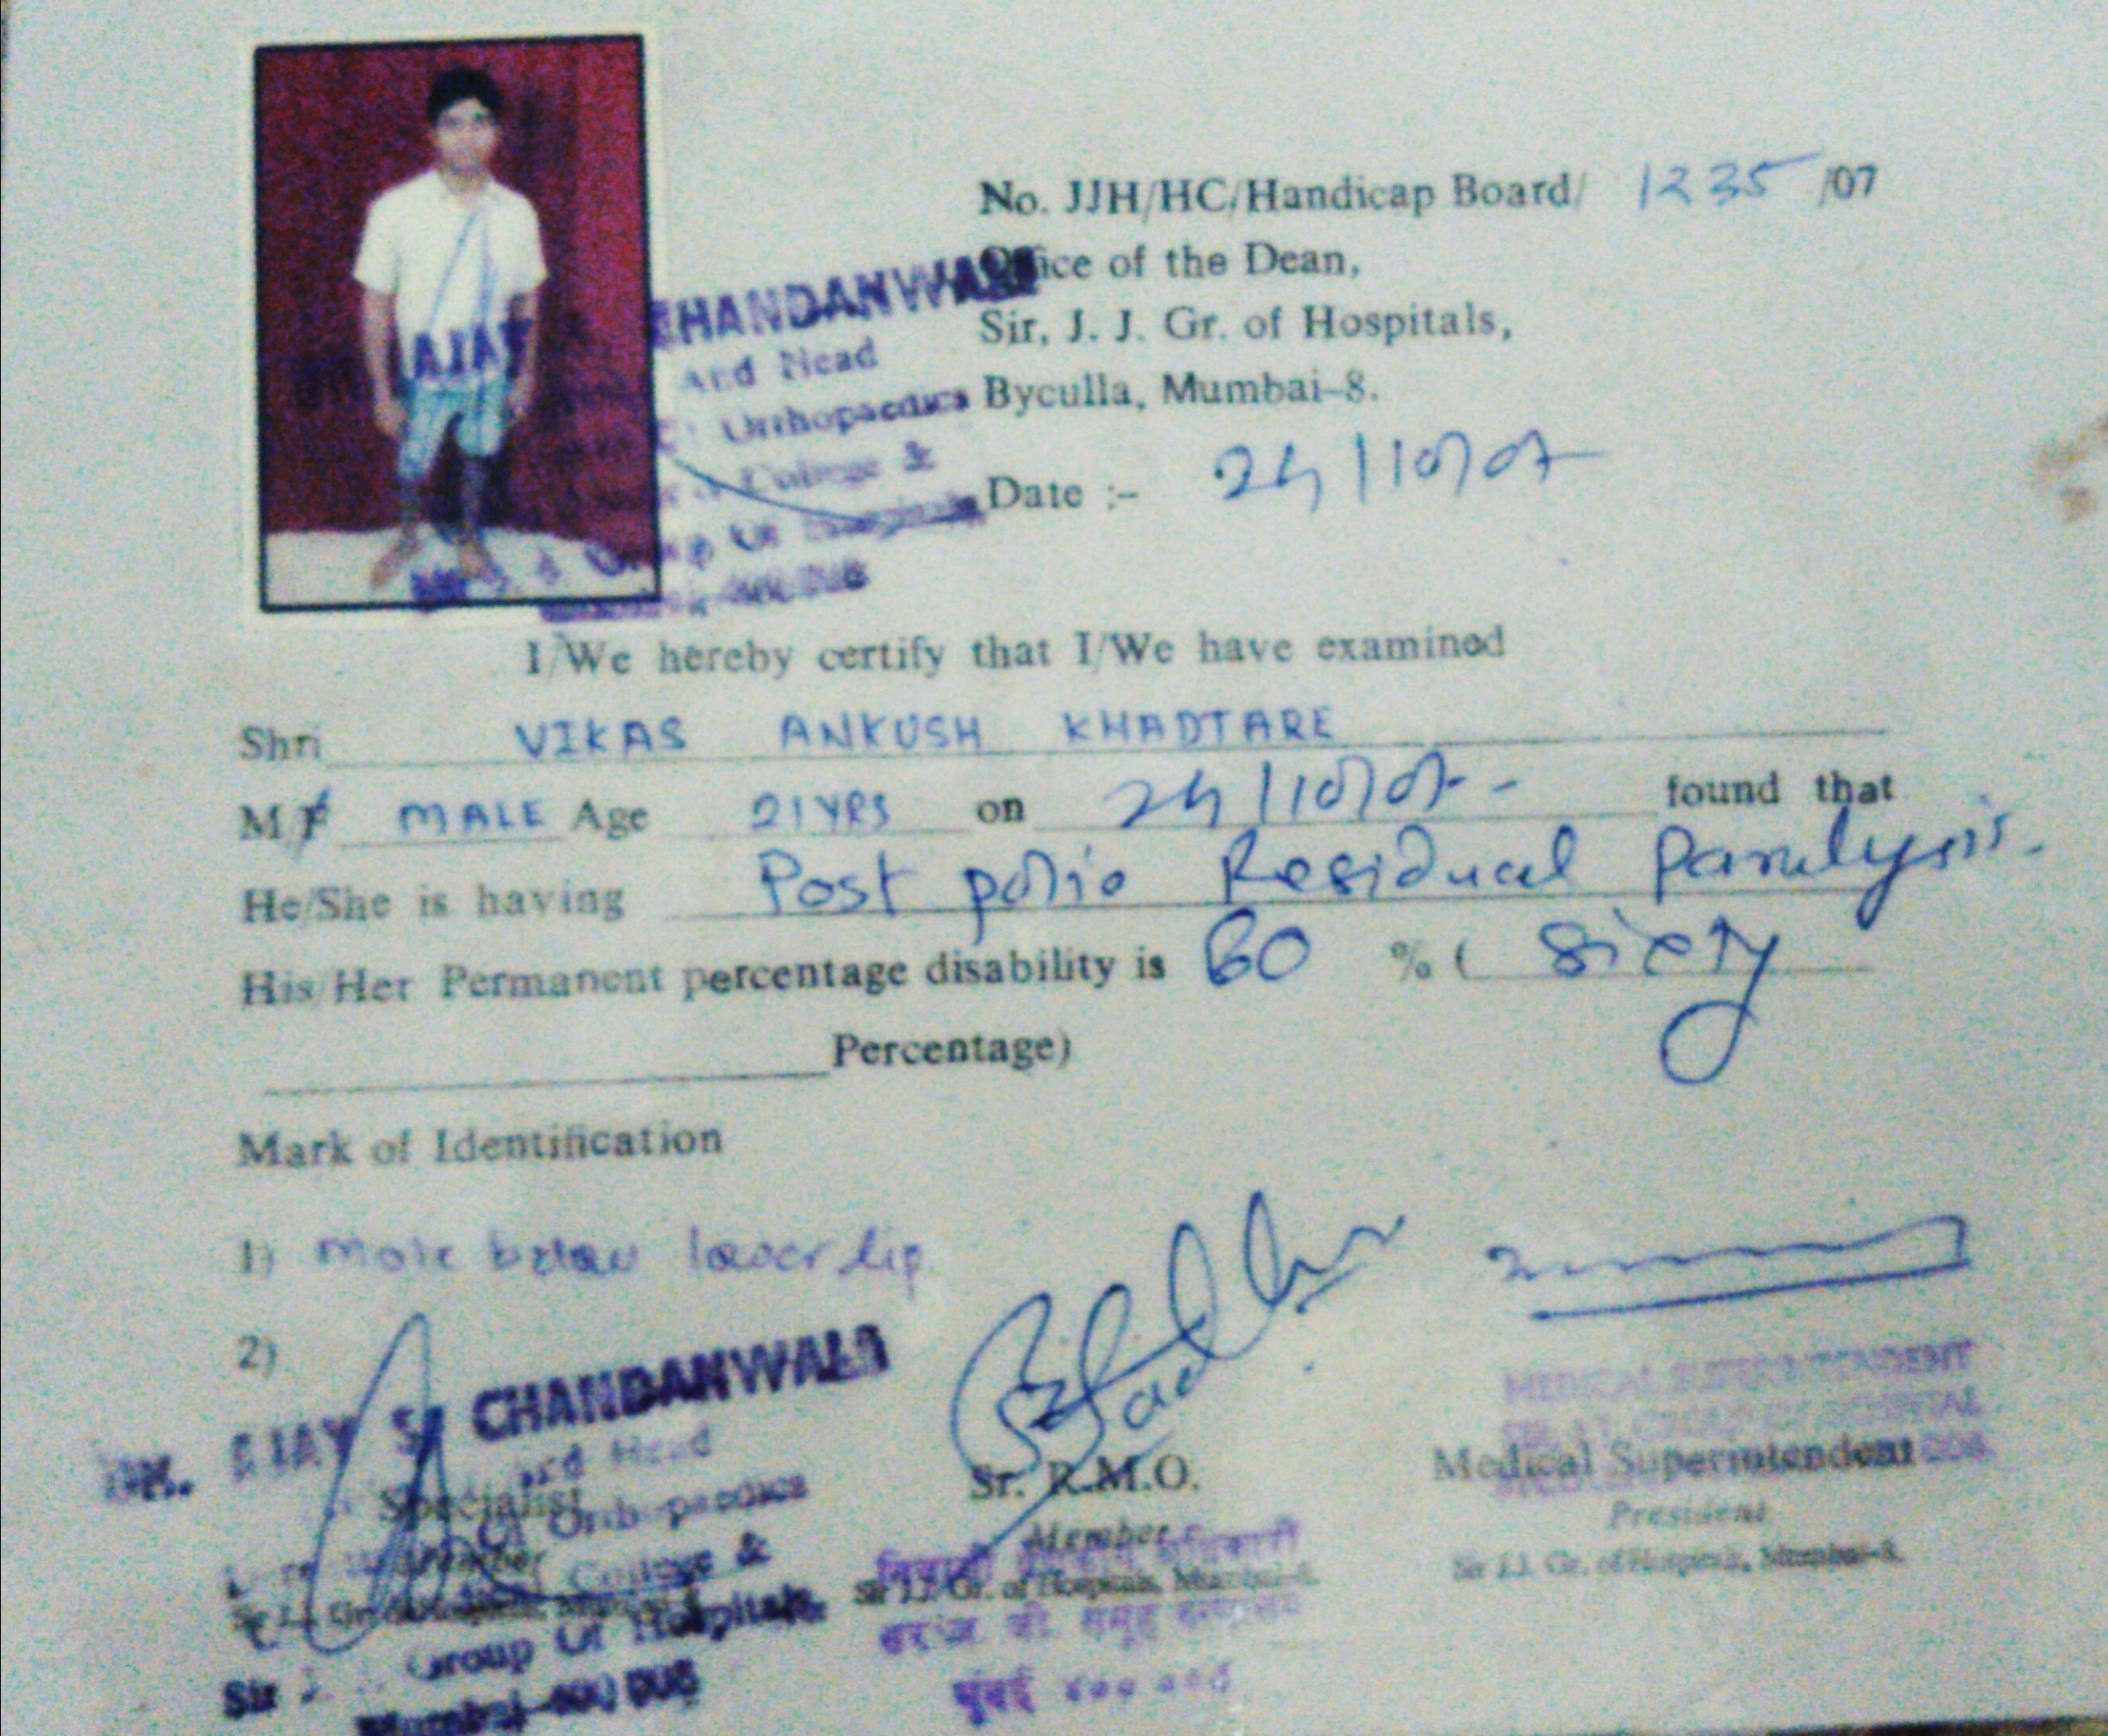 No. JJH/HC/Handicap Board/ 1235 /07
Office of the Dean,
Sir, J. J. Gr. of Hospitals,
Byculla, Mumbai-8.
Date :- 24/10/07
AJAY CHANDANWALE
And Head
Orthopaedics
College &
I/We hereby certify that I/We have examined
Shri VIKAS ANKUSH KHADTARE
M/F MALE Age 21 YRS on 24/10/07- found that
He/She is having Post polio Residual Paralysis.
His/Her Permanent percentage disability is 60 % ( Sixty
Percentage)
Mark of Identification
1) mole below lower lip
2)
DR. AJAY S. CHANDANWALE
And Head
Specialist
Of Orthopaedics
College &
Group Of Hospitals
Mumbai-400 008
Sr. R.M.O.
Member
Sir J.J. Gr. of Hospitals, Mumbai-8.
मुंबई ४०० ००८
MEDICAL SUPERINTENDENT
Medical Superintendent
President
Sir J.J. Gr. of Hospitals, Mumbai-8.